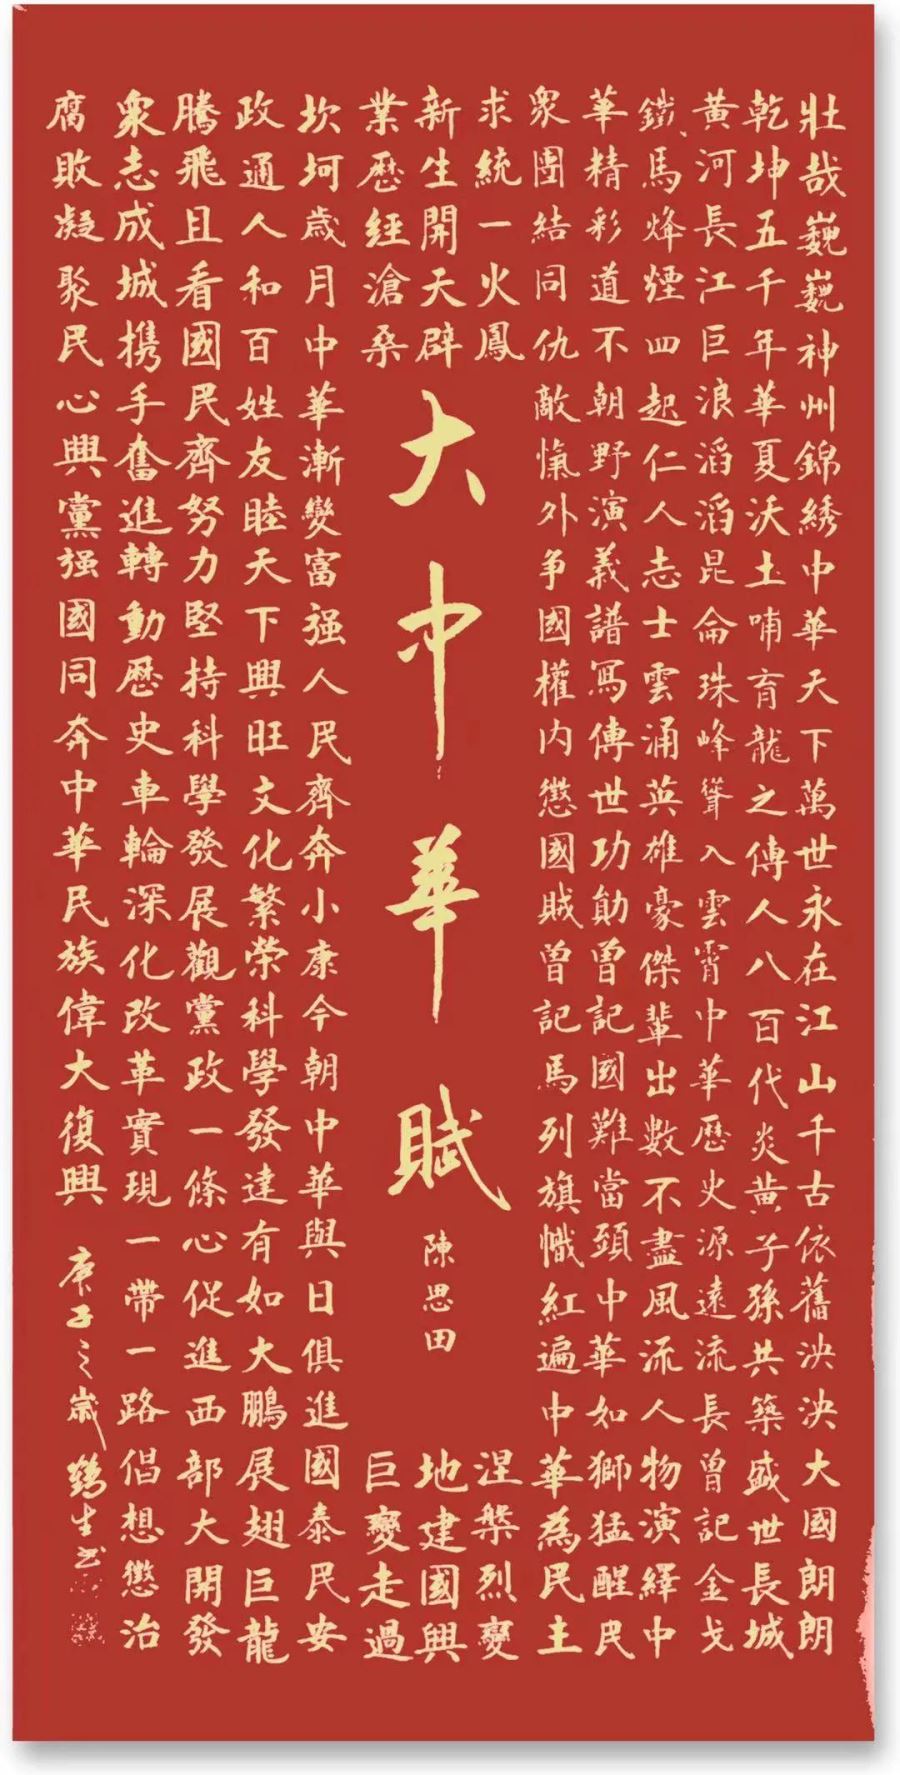 壯哉巍巍神州錦綉中華天下萬世永在江山千古依舊泱泱大國朗朗
乾坤五千年華夏沃土哺育龍之傳人八百代炎黃子孫共築盛世長城
黃河長江巨浪滔滔昆侖珠峰聳入雲霄中華歷史源遠流長曾記金戈
鐵馬烽煙四起仁人志士雲涌英雄豪傑輩出數不盡風流人物演繹中
華精彩道不朝野演義譜寫傳世功勛曾記國難當頭中華如獅猛醒民
衆團結同仇敵愾外争國權内懲國賊曾記馬列旗幟紅遍中華為民主
求統一火鳳涅槃烈變
新生開天辟地建國興
業歷經滄桑巨變走過
大中華賦
陳思田
坎坷歲月中華漸變富强人民齊奔小康今朝中華與日俱進國泰民安
政通人和百姓友睦天下興旺文化繁榮科學發達有如大鵬展翅巨龍
騰飛且看國民齊努力堅持科學發展觀黨政一條心促進西部大開發
衆志成城携手奮進轉動歷史車輪深化改革實現一帶一路倡想懲治
腐敗凝聚民心興黨强國同奔中華民族偉大復興 庚子之歲 生書